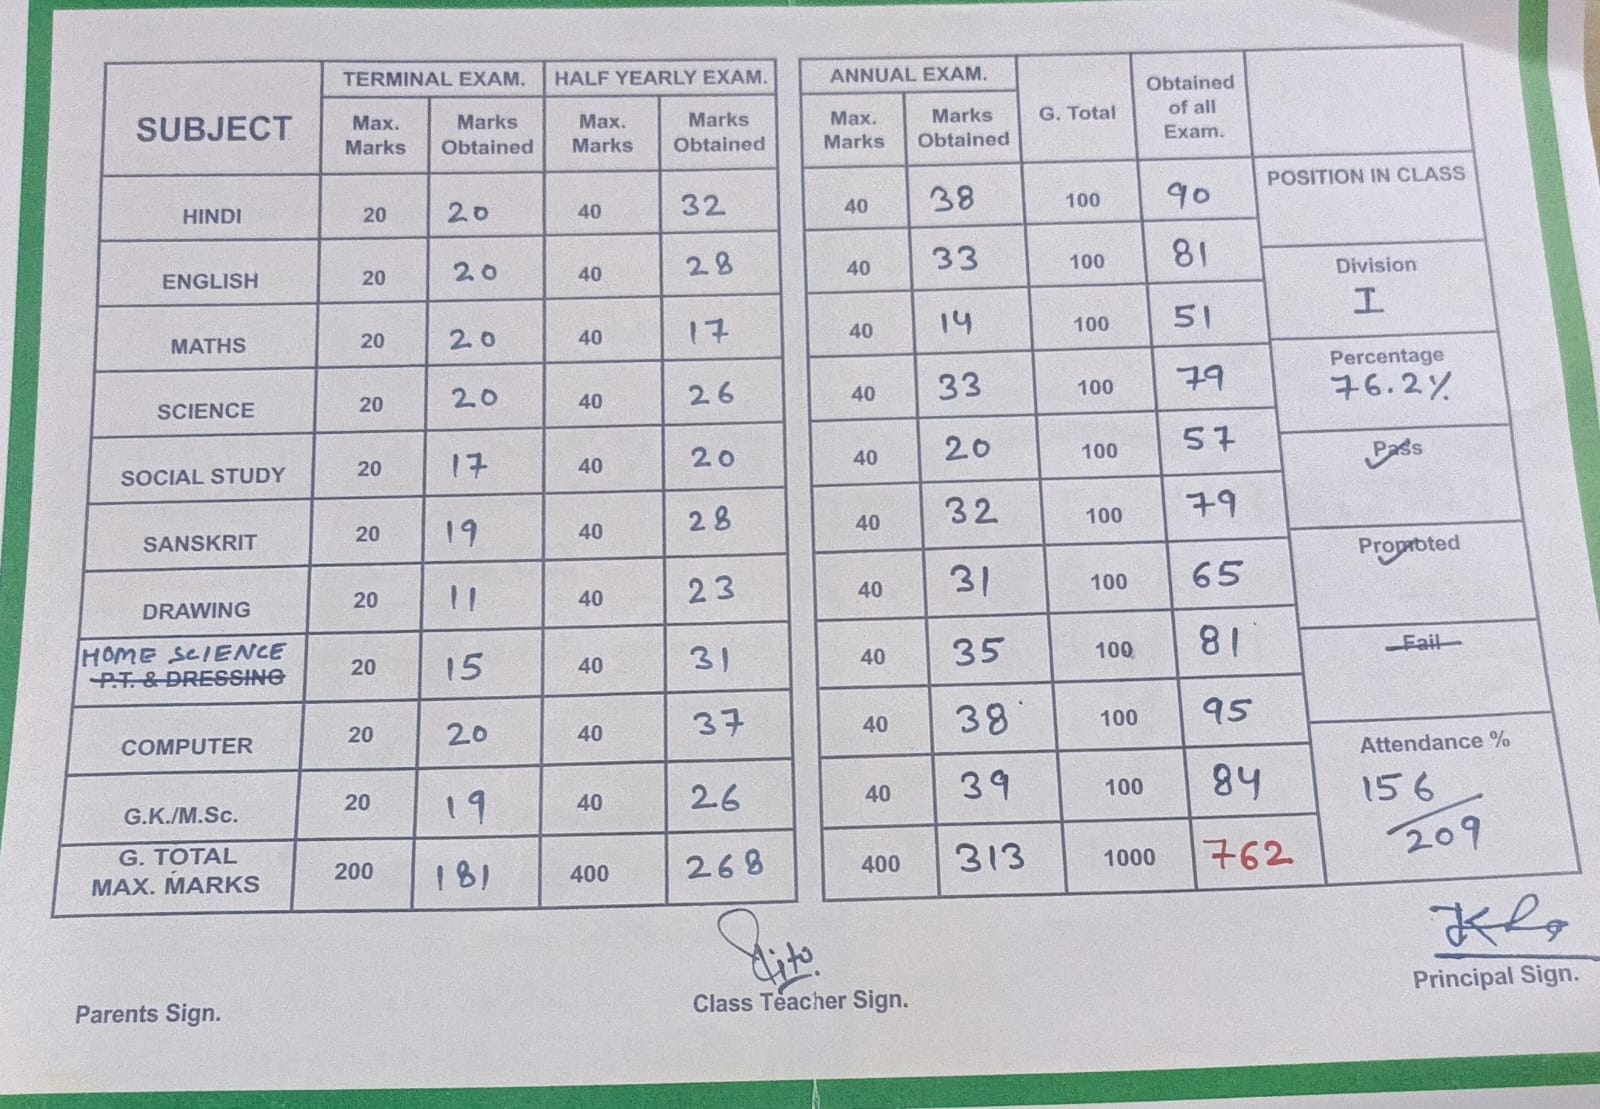 SUBJECT TERMINAL EXAM. HALF YEARLY EXAM. ANNUAL EXAM. G. Total Obtained of all Exam.
Max. Marks Marks Obtained Max. Marks Marks Obtained Max. Marks Marks Obtained
HINDI 20 20 40 32 40 38 100 90
ENGLISH 20 20 40 28 40 33 100 81
MATHS 20 20 40 17 40 14 100 51
SCIENCE 20 20 40 26 40 33 100 79
SOCIAL STUDY 20 17 40 20 40 20 100 57
SANSKRIT 20 19 40 28 40 32 100 79
DRAWING 20 11 40 23 40 31 100 65
HOME SCIENCE
P.T. & DRESSING 20 15 40 31 40 35 100 81
COMPUTER 20 20 40 37 40 38 100 95
G.K./M.Sc. 20 19 40 26 40 39 100 84
G. TOTAL
MAX. MARKS 200 181 400 268 400 313 1000 762
POSITION IN CLASS
Division
I
Percentage
76.2%
Pass
Promoted
Fail
Attendance %
156
209
Parents Sign.
Class Teacher Sign.
Principal Sign.